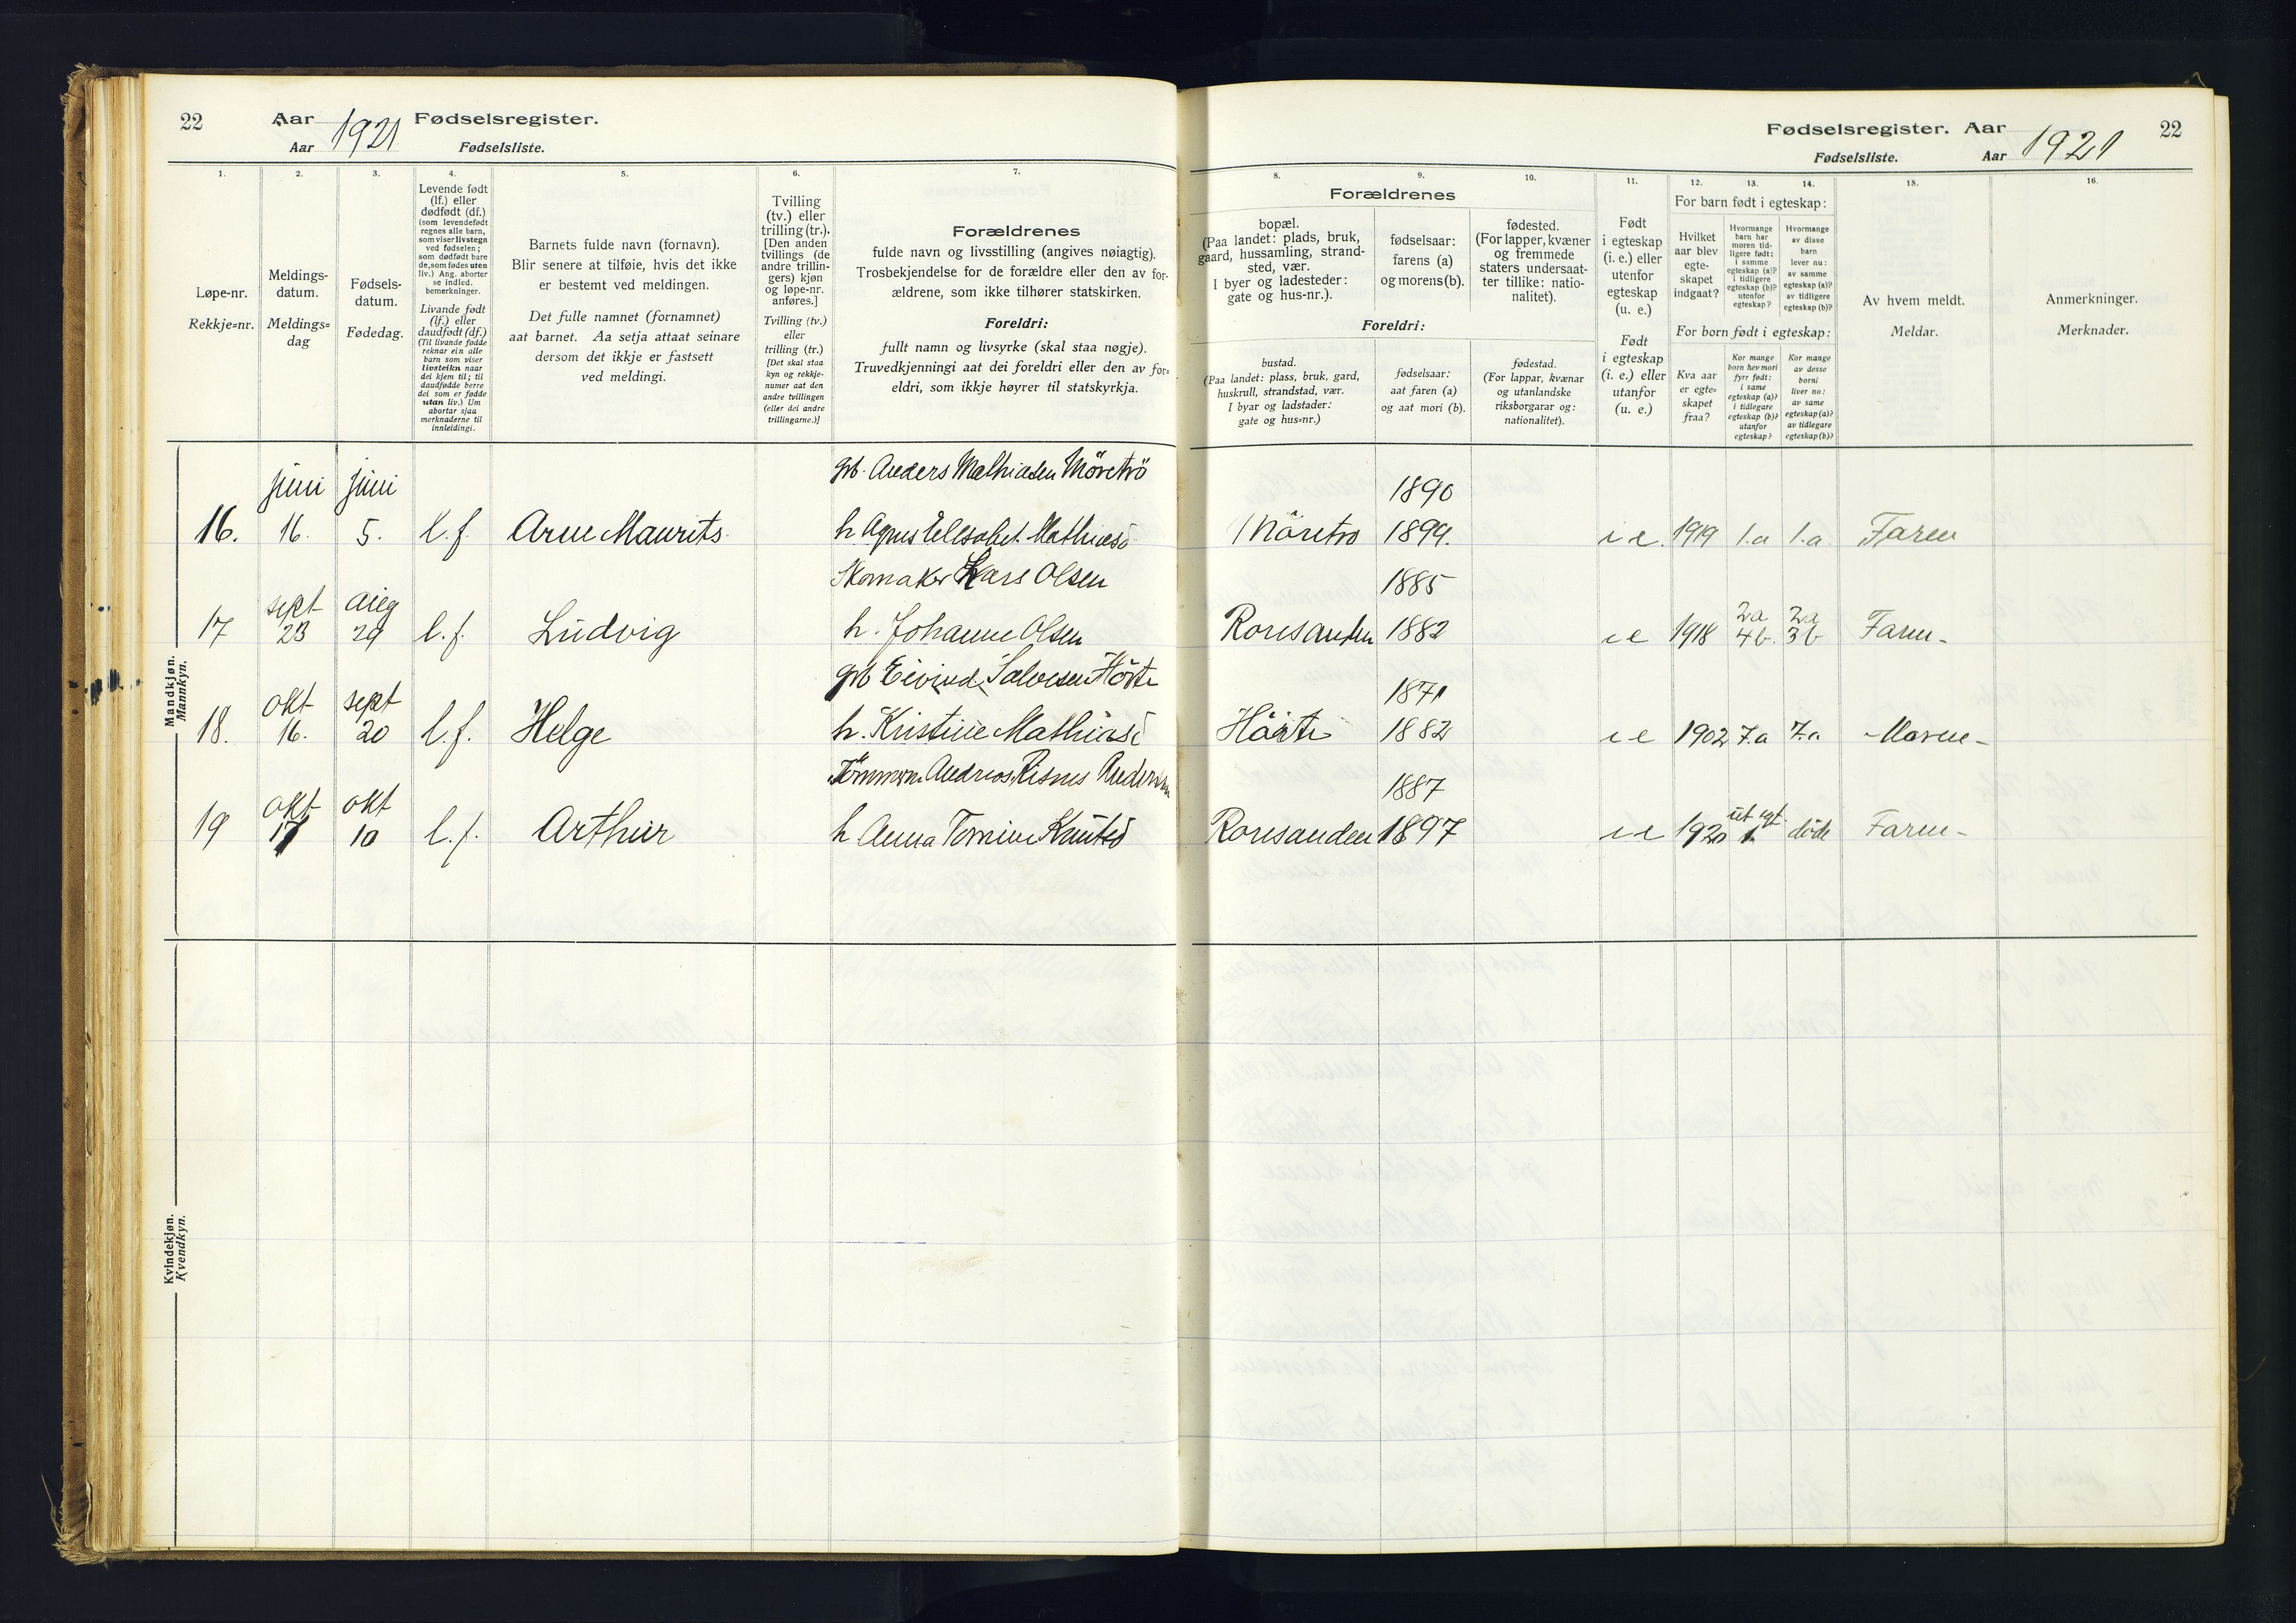 22
Aar 1921 Fødselsregister.
Aar Fødselsliste.
1.
2.
3.
4.
5.
6.
7.
Løpe-nr.
Rekkje=nr.
Meldings-
datum.
Meldings=
dag
Fødsels-
datum.
Fødedag.
Levende født
(lf.) eller
dødfødt (df.)
(som levendefødt
regnes alle barn,
som viser livstegn
ved fødselen;
som dødfødt bare
de, som fødes uten
liv.) Ang. aborter
se indled.
bemerkninger.
Livande født
(lf.) eller
daudfødt (df.)
(Til livande fødde
reknar ein alle
barn som viser
livsteikn naar
dei kjem til; til
daudfødde berre
dei som er fødde
utan liv.) Um
abortar sjaa
merknaderne til
innleidingi.
Barnets fulde navn (fornavn).
Blir senere at tilføie, hvis det ikke
er bestemt ved meldingen.
Det fulle namnet (fornamnet)
aat barnet. Aa setja attaat seinare
dersom det ikkje er fastsett
ved meldingi.
Tvilling
(tv.) eller
trilling (tr.).
[Den anden
tvillings (de
andre trillin-
gers) kjøn
og løpe-nr.
anføres.]
Tvilling (tv.)
eller
trilling (tr.)
[Det skal staa
kyn og rekkje-
numer aat den
andre tvillingen
(eller dei andre
trillingarne.)]
Forældrenes
fulde navn og livsstilling (angives nøiagtig).
Trosbekjendelse for de forældre eller den av for-
ældrene, som ikke tilhører statskirken.
Foreldri:
fullt namn og livsyrke (skal staa nøgje).
Truvedkjenningi aat dei foreldri eller den av for=
eldri, som ikkje høyrer til statskyrkja.
Mandkjøn.
Mannkyn.
juni juni grb. Anders Mathiasen Møretrö
16. 16. 5. l.f. Arne Maurits h Agnes Elisabet Mathiasd
Skomaker Lars Olsen
sept aug
17 23 29 l.f. Ludvig h. Johanne Olsen
grb Eivind Salvesen Hörte
okt sept
18. 16. 20 l.f. Helge h. Kristine Mathiasd
Tömmerm. Andreas Risnes Andersen
okt okt
19 17 10 l.f. Arthur h Anna Tomine Knutsd
Kvindekjøn.
Kvendkyn.
Fødselsregister. Aar 1921 22
Fødselsliste. Aar
8.
9.
10.
11.
12.
13.
14.
15.
16.
Forældrenes
bopæl.
(Paa landet: plads, bruk,
gaard, hussamling, strand-
sted, vær.
I byer og ladesteder:
gate og hus-nr.).
fødselsaar:
farens (a)
og morens (b).
fødested.
(For lapper, kvæner
og fremmede
staters undersaat-
ter tillike: natio-
nalitet).
Foreldri:
bustad.
(Paa landet: plass, bruk, gard,
huskrull, strandstad, vær.
I byar og ladstader:
gate og hus=nr.)
fødselsaar:
aat faren (a)
og aat mori (b).
fødestad.
(For lappar, kvænar
og utanlandske
riksborgarar og:
nationalitet).
Født
i egteskap
(i. e.) eller
utenfor
egteskap
(u. e.)
Født
i egteskap
(i. e.) eller
utanfor
(u. e.)
For barn født i egteskap:
Hvilket
aar blev
egte-
skapet
indgaat?
Hvormange
barn har
moren tid-
ligere født:
i samme
egteskap (a)?
i tidligere
egteskap (b)?
utenfor
egteskap?
Hvormange
av disse
barn
lever nu:
av samme
egteskap (a)?
av tidligere
egteskap (b)?
For born født i egteskap:
Kva aar
er egte=
skapet
fraa?
Kor mange
born hev mori
fyrr født:
i same
egteskap (a)?
i tidlegare
egteskap (b)?
utanfor
egteskap?
Kor mange
av desse
borni
liver no:
av same
egteskap (a)?
av tidlegare
egteskap (b)?
Av hvem meldt.
Meldar.
Anmerkninger.
Merknader.
1890
Möretro 1899. i e. 1919 1.a 1.a Faren
1885
2a 2a
Roresanden 1882 i e 1918 4b. 3b Faren-
1871
Hörte 1882 i e 1902 7.a 7.a -Moren-
1887
ut egt.
Roresanden 1897 i e 1920 1. död Faren-